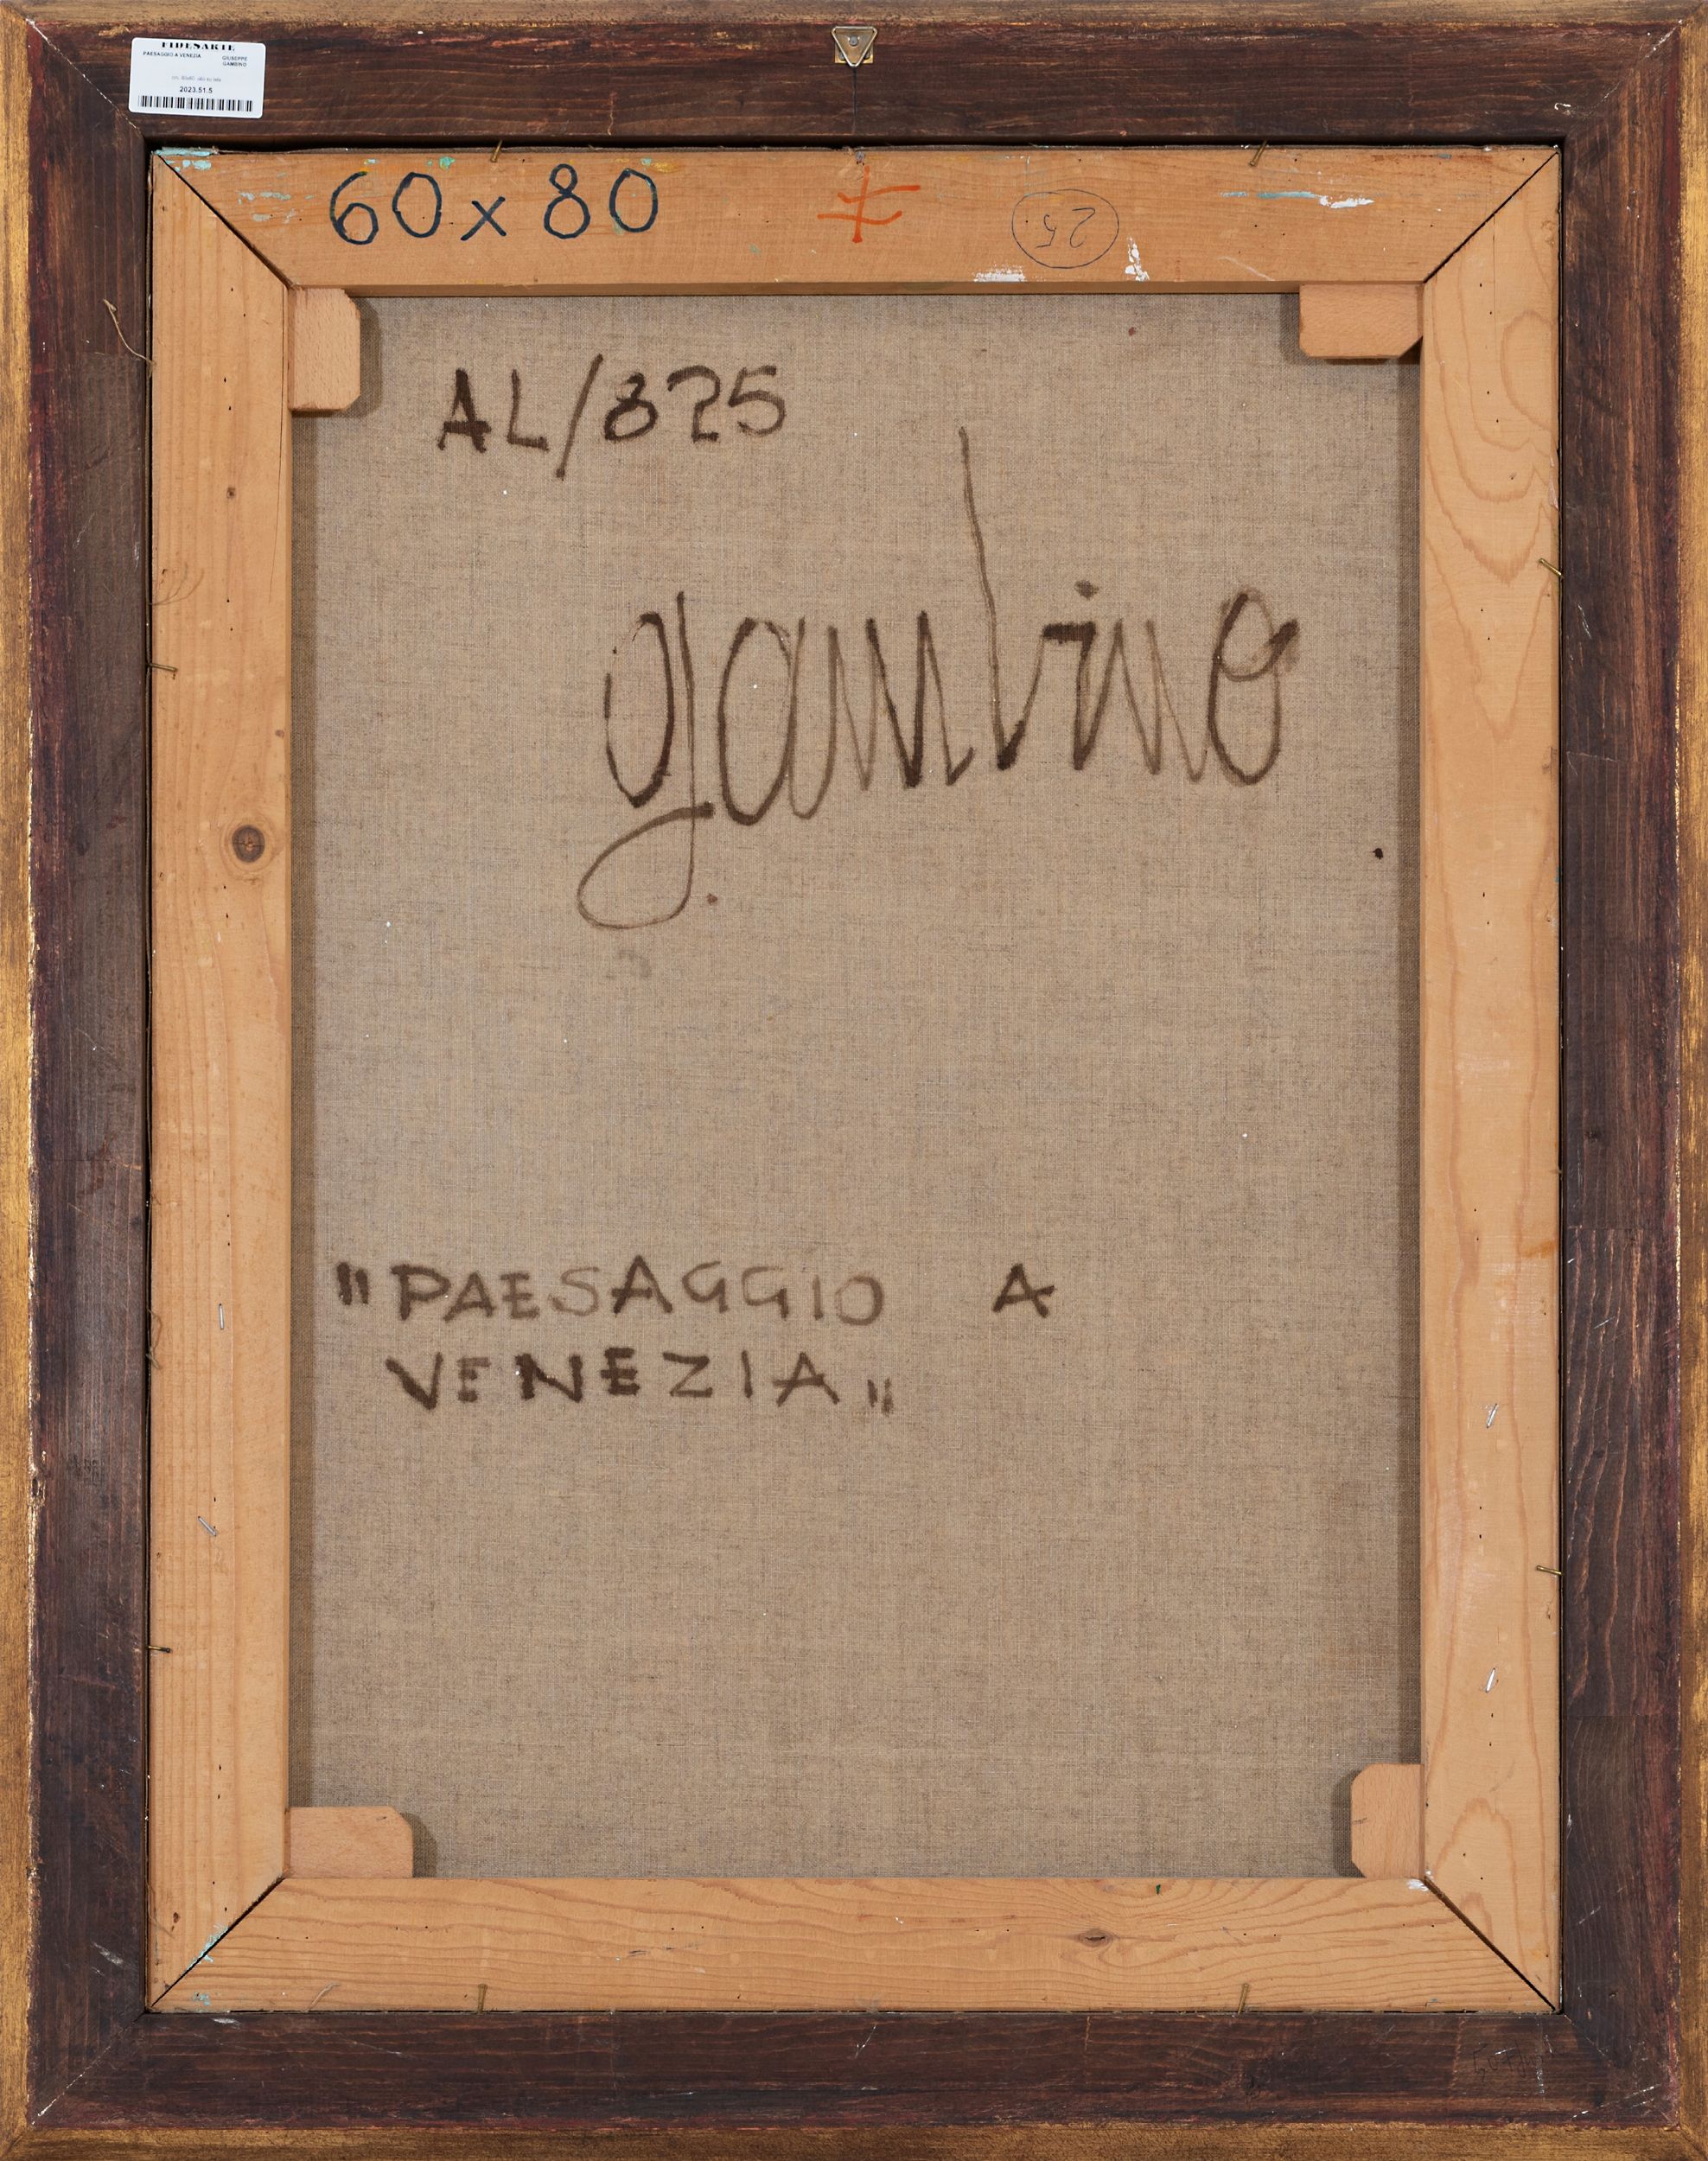 FIDESARTE
PAESAGGIO A VENEZIA
GIUSEPPE
GAMBINO
2023.51.5
60x80
25.
AL/825
gambino
"PAESAGGIO A
VENEZIA"